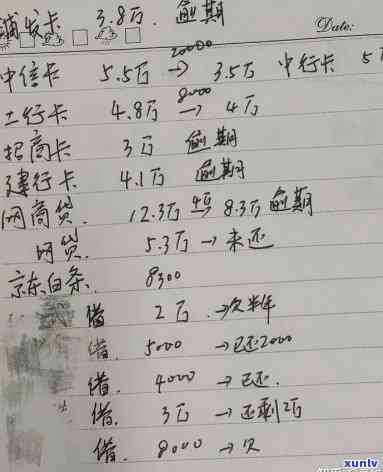 浦发卡 3.8万. 逾期
Date:
中信卡 5.5万 20000→ 3.5万 中行卡 5万
工行卡 4.8万 8000→ 4万
招商卡 3万 逾期
建行卡 4.1万 逾期
网商贷. 12.3万 4万→ 8.3万 逾期
网贷. 5.3万 → 未还
京东白条. 8300
借 2万 →欠半年
借. 5000 →已还2000
借. 4000 →已还.
借. 3万 →还剩2万
借. 8000 →欠
xunlv